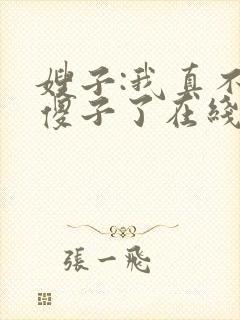 嫂子:我真不
傻子了在綫
張一飛